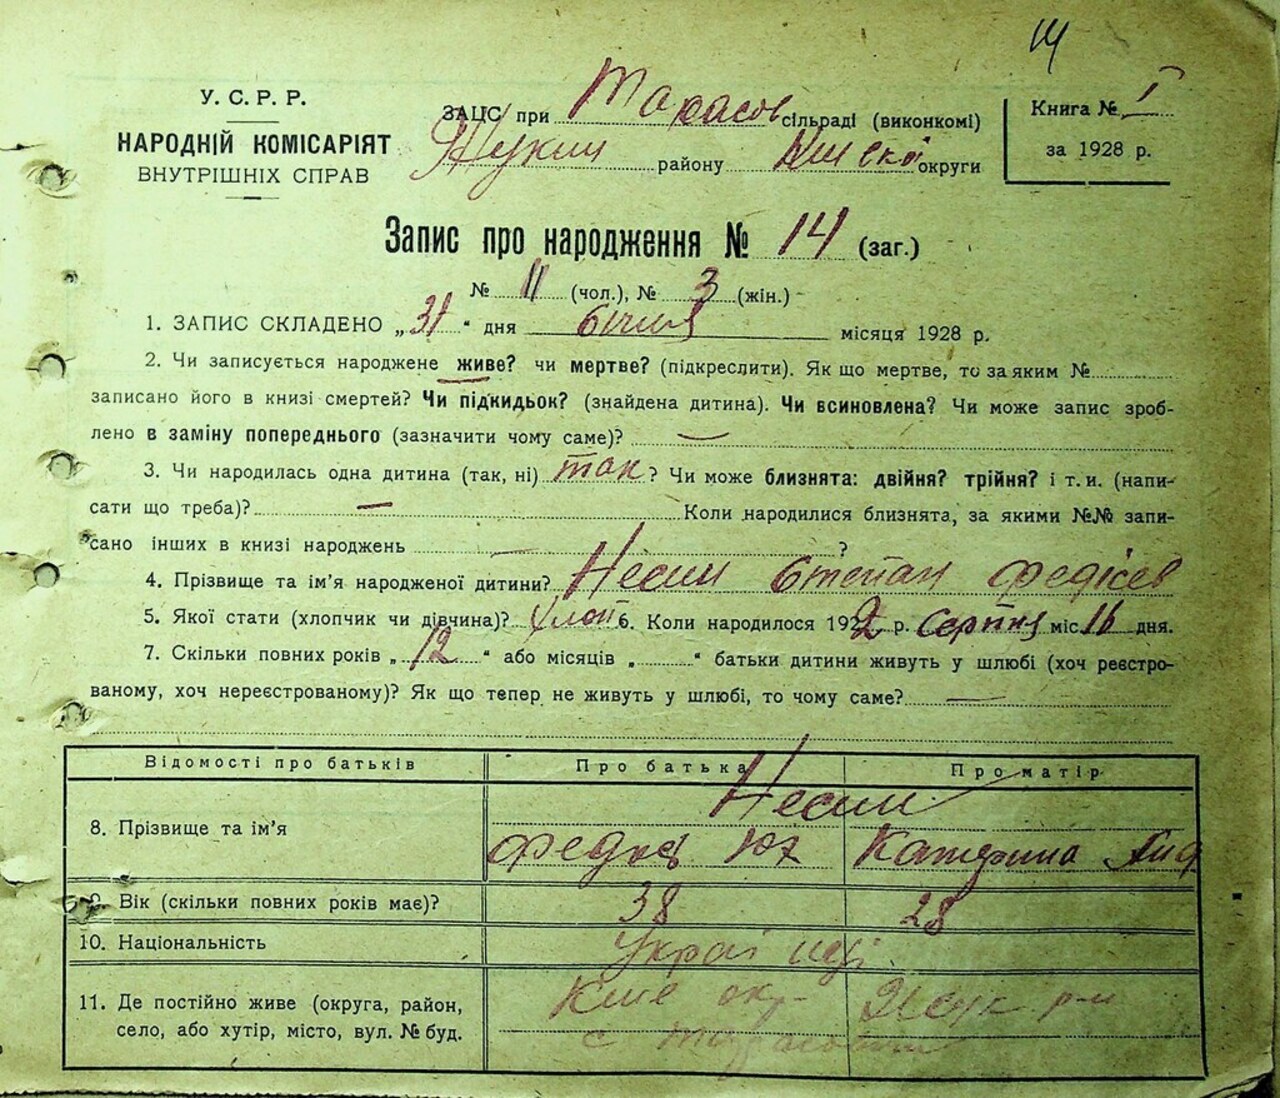 14
У. С. Р. Р.
НАРОДНІЙ КОМІСАРІЯТ
ВНУТРІШНІХ СПРАВ
ЗАЦС при Тарасов сільраді (виконкомі)
району округи
Книга № I
за 1928 р.
Запис про народження № 14 (заг.)
№ 11 (чол.), № 3 (жін.)
1. ЗАПИС СКЛАДЕНО „31“ дня Січня місяця 1928 р.
2. Чи записується народжене живе? чи мертве? (підкреслити). Як що мертве, то за яким №
записано його в книзі смертей? Чи підкидьок? (знайдена дитина). Чи всиновлена? Чи може запис зроб-
лено в заміну попереднього (зазначити чому саме)? —
3. Чи народилась одна дитина (так, ні) так? Чи може близнята: двійня? трійня? і т. и. (напи-
сати що треба)? — Коли народилися близнята, за якими №№ запи-
сано інших в книзі народжень — ?
4. Прізвище та ім’я народженої дитини? Несин Степан Федісев
5. Якої стати (хлопчик чи дівчина)? хлоп 6. Коли народилося 192 р. Серпня міс. 16 дня.
7. Скільки повних років „12“ або місяців „ “ батьки дитини живуть у шлюбі (хоч реєстро-
ваному, хоч нереєстрованому)? Як що тепер не живуть у шлюбі, то чому саме? —
Відомості про батьків Про батька Про матір
Несин
8. Прізвище та ім’я
Катерина
9. Вік (скільки повних років має)? 38 28
10. Національність Украї нці
11. Де постійно живе (округа, район, окр р-н
село, або хутір, місто, вул. № буд. с